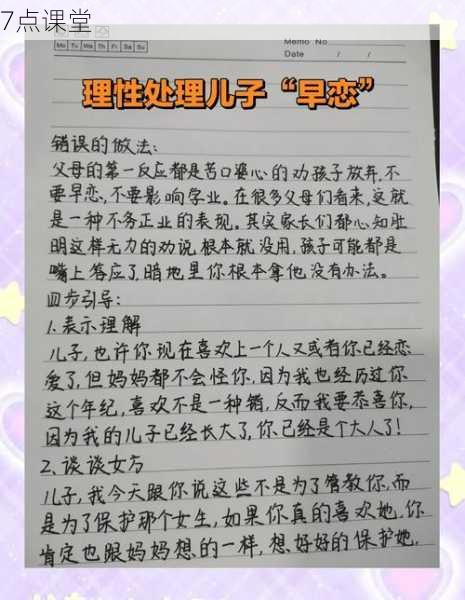 7点课堂
Memo No
Mo Tu We Th Fr Sa Su
Date / /
理性处理儿子“早恋”
错误的做法:
父母的第一反应都是苦口婆心的劝孩子放弃,不
要早恋,不要影响学业。在很多父母们看来,这就
是一种不务正业的表现。其实家长们都心知肚
明这样无力的劝说,根本就没用,孩子可能都是
嘴上答应了,暗地里你根本拿他没有办法。
四步引导:
1.表示理解
儿子,也许你现在喜欢上一个人又或者你已经恋
爱了,但妈妈都不会怪你,因为我也经历过你
这个年纪,喜欢不是一种错,反而我要恭喜你,
因为我的儿子已经长大了,你已经是个大人了!
2、谈谈女方
儿子,我今天跟你说这些不是为了管教你,而
是为了保护那个女生,如果你真的喜欢她,你
肯定也跟妈妈想的一样,想好好的保护她,